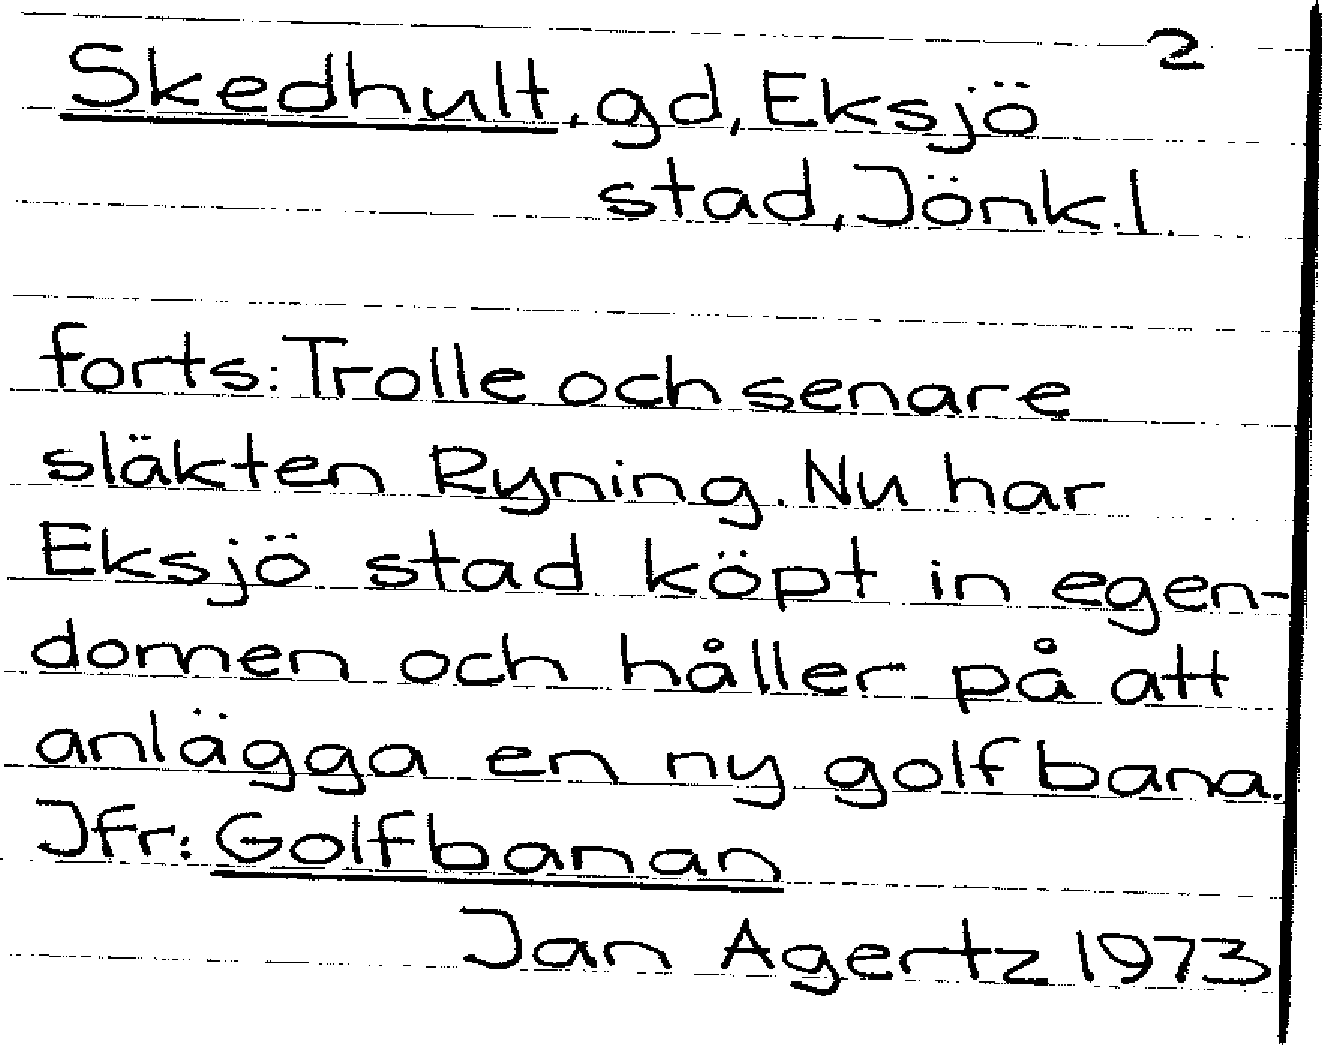 2
Skedhult, gd, Eksjö
stad, Jönk. l.
forts: Trolle och senare
släkten Ryning. Nu har
Eksjö stad köpt in egen-
domen och håller på att
anlägga en ny golfbana.
Jfr: Golfbanan
Jan Agertz 1973